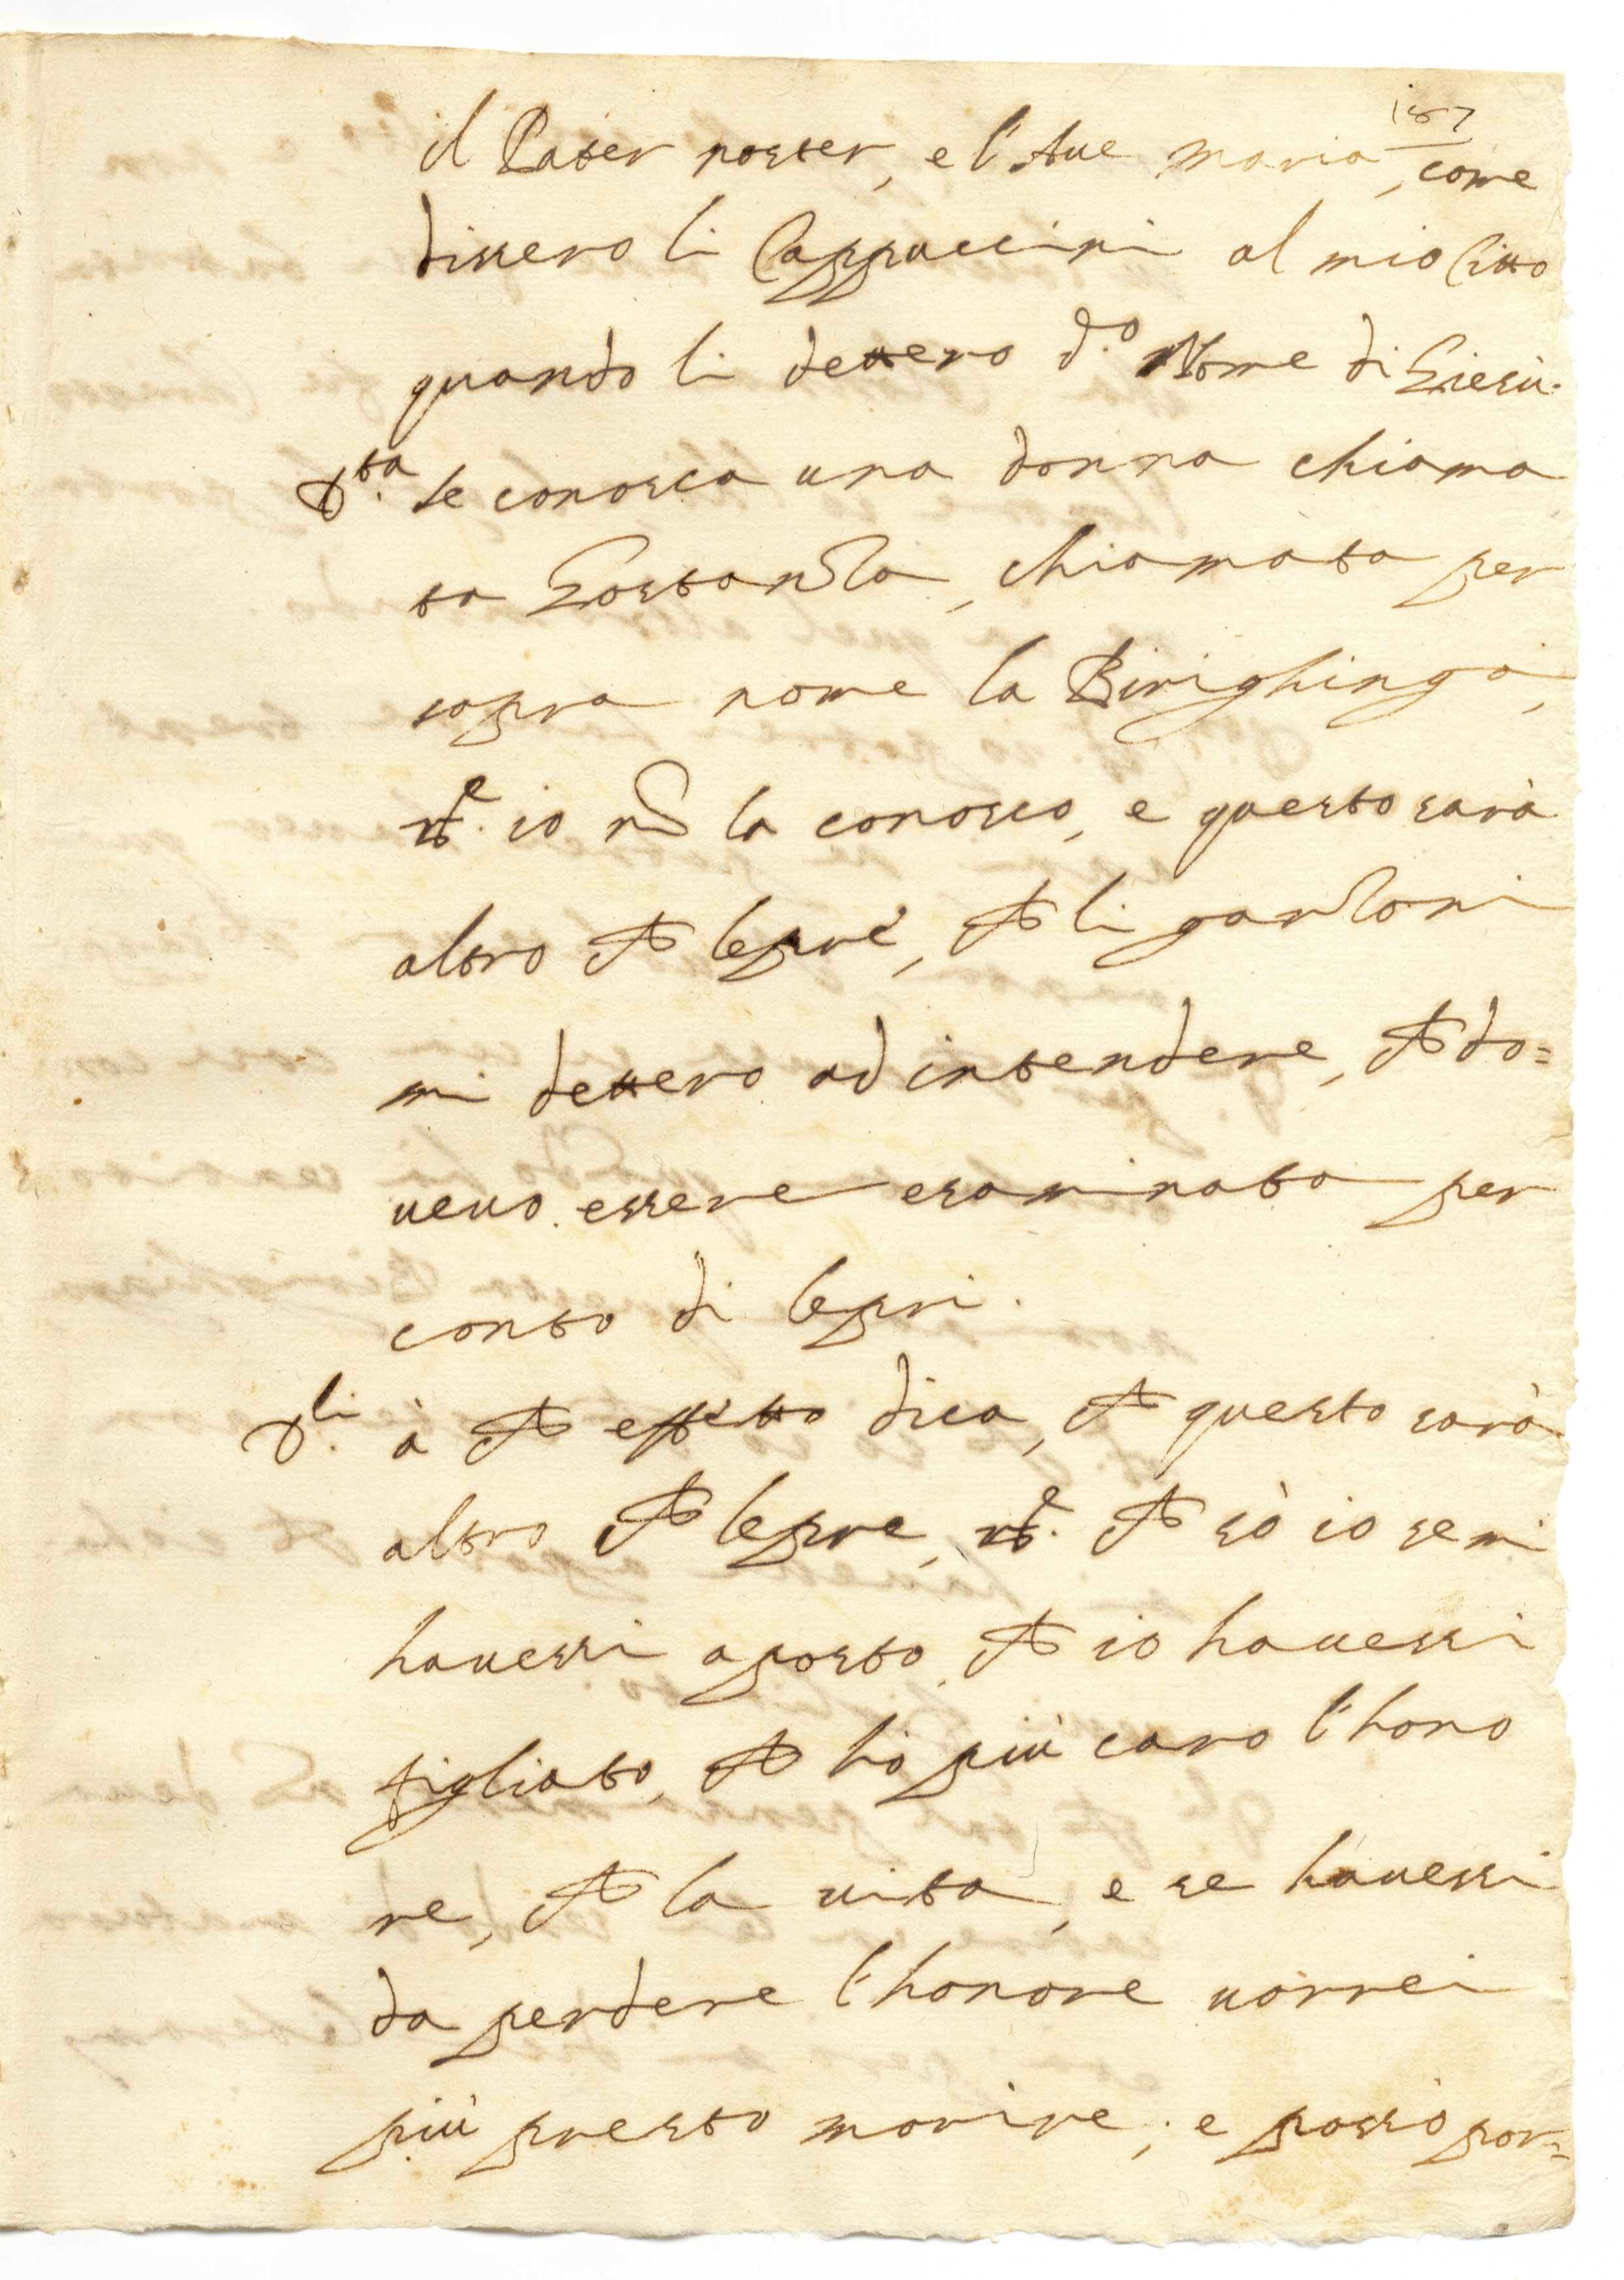 187
il Pater noster, e l'Aue maria, come
dissero li Cappuccini al mio Citto
quando li dettero d.o Nome di Giesù.
D.ta se conosca una donna chiama
ta Gostanza, chiamata per
sopra nome la Birighinga,
R.e io nõ la conosco, e questo sarà
altro che lepre, che li garzoni
mi dettero ad intendere, che do=
ueuo essere esaminata per
conto di lepri.
D.li à che effetto dica, che questo sarà
altro che lepre, R.e che sò io se mi
hauessi aposto che io hauessi
figliato, che hò più caro l'hono
re, che la uita, e se hauessi
da perdere l'honore uorrei
più presto morire; e posso por=